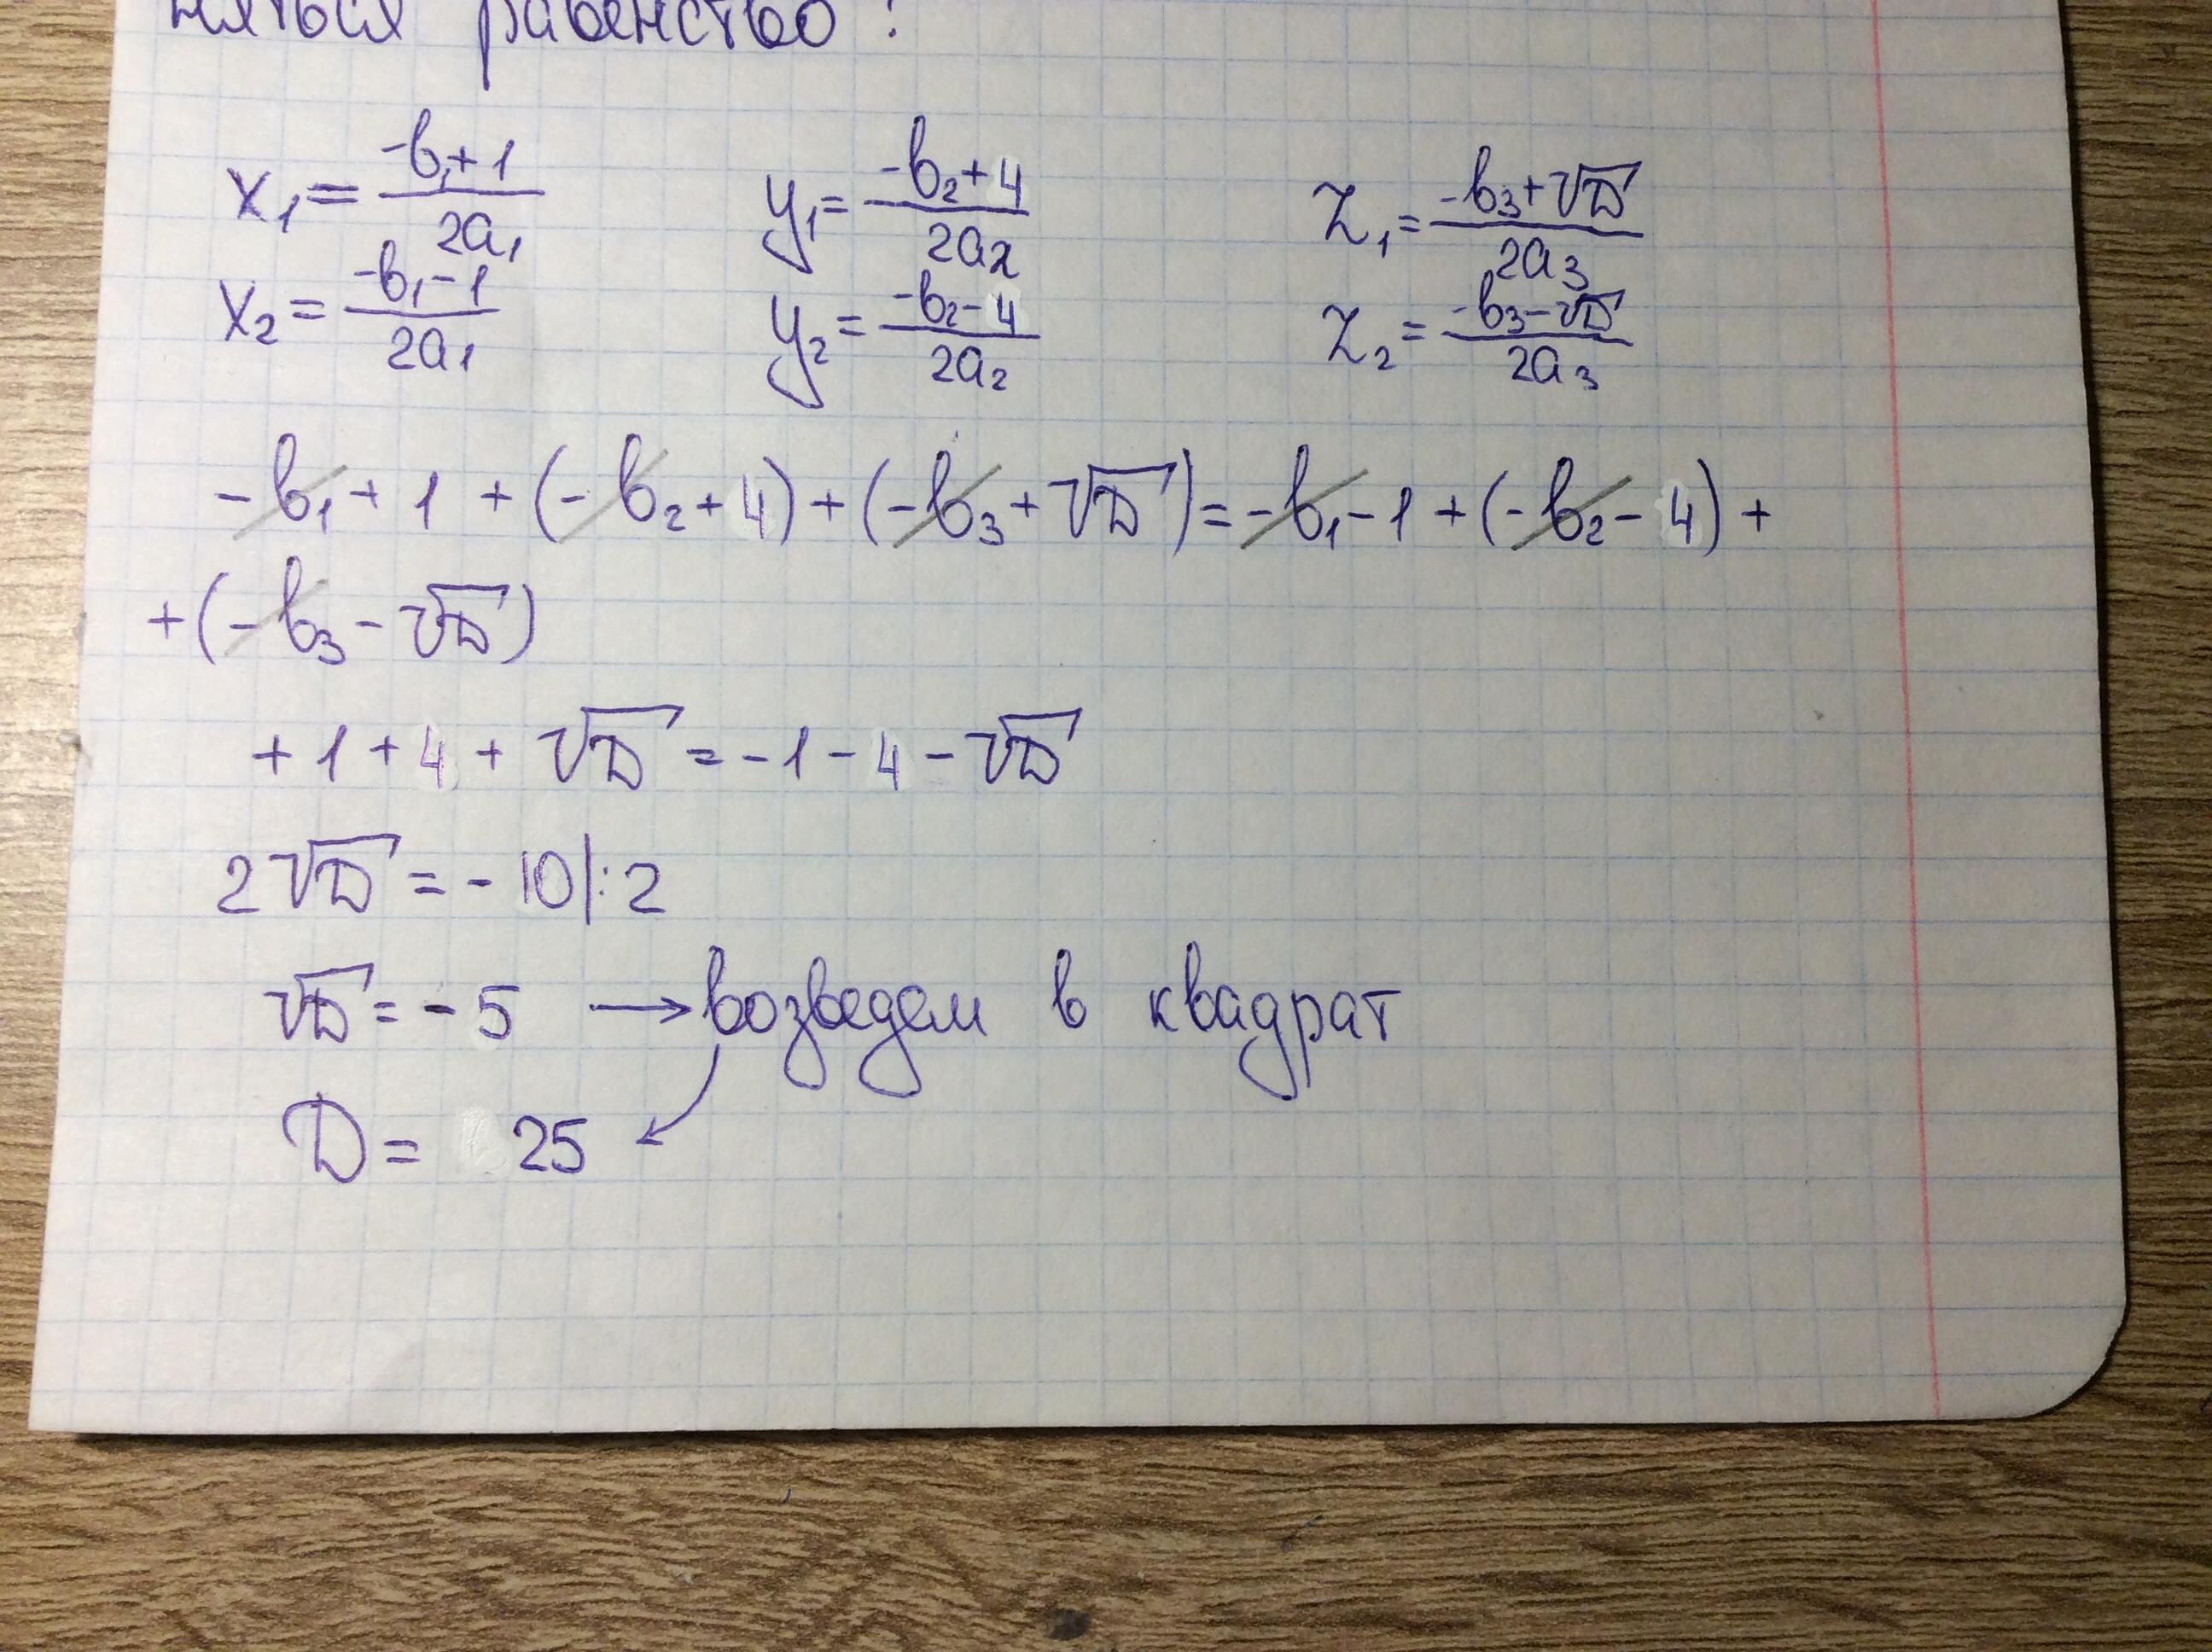 равенство:
x₁ = (-b₁+1)/(2a₁) y₁ = (-b₂+4)/(2a₂) z₁ = (-b₃+√D)/(2a₃)
x₂ = (-b₁-1)/(2a₁) y₂ = (-b₂-4)/(2a₂) z₂ = (-b₃-√D)/(2a₃)
-b₁ + 1 + (-b₂+4) + (-b₃+√D) = -b₁-1 + (-b₂-4) +
+ (-b₃-√D)
+1+4+√D = -1-4-√D
2√D = -10 |:2
√D = -5 → возведем в квадрат
D = 25